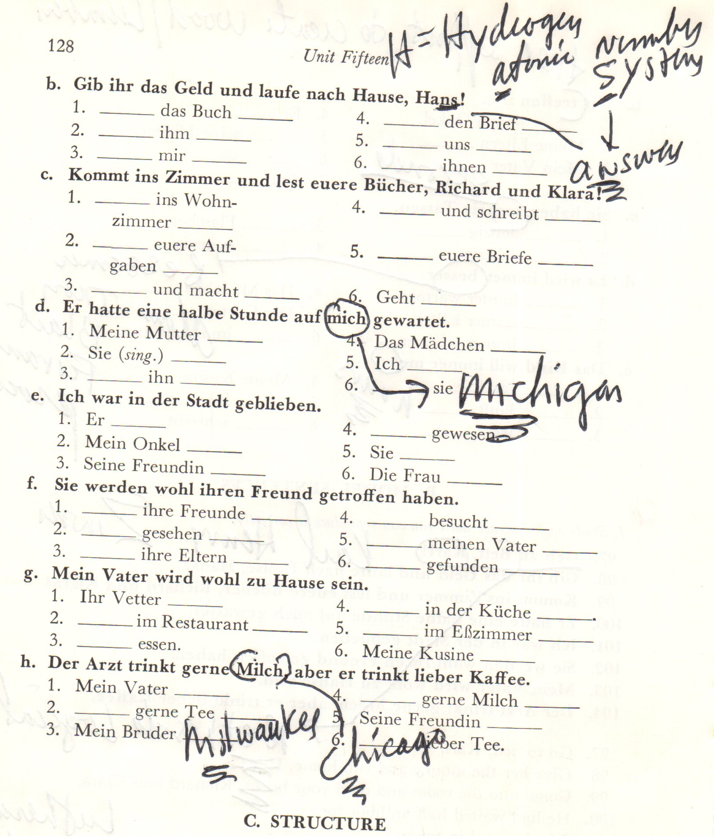 128
Unit Fifteen
H = Hydrogen
atomic number
System
answer
b. Gib ihr das Geld und laufe nach Hause, Hans!
1. _____ das Buch _____
2. _____ ihm _____
3. _____ mir _____
4. _____ den Brief _____
5. _____ uns _____
6. _____ ihnen _____
c. Kommt ins Zimmer und lest euere Bücher, Richard und Klara!
1. _____ ins Wohn-
zimmer _____
2. _____ euere Auf-
gaben _____
3. _____ und macht _____
4. _____ und schreibt _____
5. _____ euere Briefe _____
6. Geht _____
d. Er hatte eine halbe Stunde auf mich gewartet.
1. Meine Mutter _____
2. Sie (sing.) _____
3. _____ ihn _____
4. Das Mädchen _____
5. Ich
6. sie
Michigan
e. Ich war in der Stadt geblieben.
1. Er _____
2. Mein Onkel _____
3. Seine Freundin _____
4. _____ gewesen.
5. Sie _____
6. Die Frau _____
f. Sie werden wohl ihren Freund getroffen haben.
1. _____ ihre Freunde _____
2. _____ gesehen _____
3. _____ ihre Eltern _____
4. _____ besucht _____
5. _____ meinen Vater _____
6. _____ gefunden _____
g. Mein Vater wird wohl zu Hause sein.
1. Ihr Vetter _____
2. _____ im Restaurant _____
3. _____ essen.
4. _____ in der Küche _____.
5. _____ im Eßzimmer _____
6. Meine Kusine _____
h. Der Arzt trinkt gerne Milch, aber er trinkt lieber Kaffee.
1. Mein Vater _____
2. _____ gerne Tee _____
3. Mein Bruder
4. _____ gerne Milch _____
5. Seine Freundin _____
6. _____ lieber Tee.
Milwaukee
Chicago
C. STRUCTURE